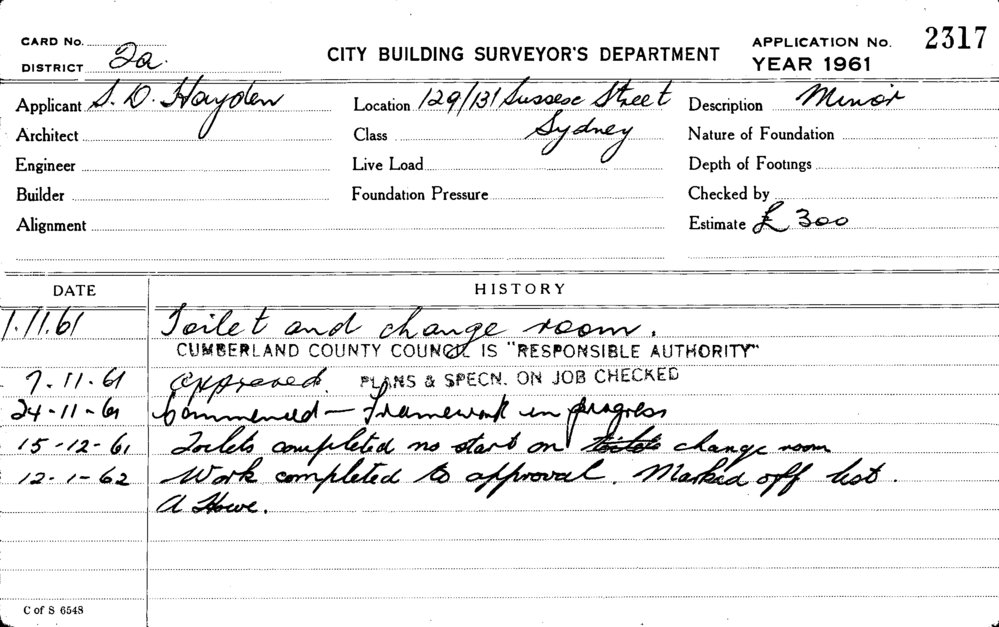 CARD No.
DISTRICT 2a.
CITY BUILDING SURVEYOR'S DEPARTMENT
APPLICATION No. 2317
YEAR 1961
Applicant S. D. Hayden
Location 129/131 Sussex Street
Description Minor
Architect
Class Sydney
Nature of Foundation
Engineer
Live Load
Depth of Footings
Builder
Foundation Pressure
Checked by
Alignment
Estimate £ 300
DATE HISTORY
1.11.61 Toilet and change room.
CUMBERLAND COUNTY COUNCIL IS "RESPONSIBLE AUTHORITY"
7.11.61 Approved. PLANS & SPECN. ON JOB CHECKED
24-11-61 Commenced - Framework in progress
15-12-61 Toilets completed no start on toilets change room
12-1-62 Work completed to approval. Marked off list.
A Howe.
C of S 6548